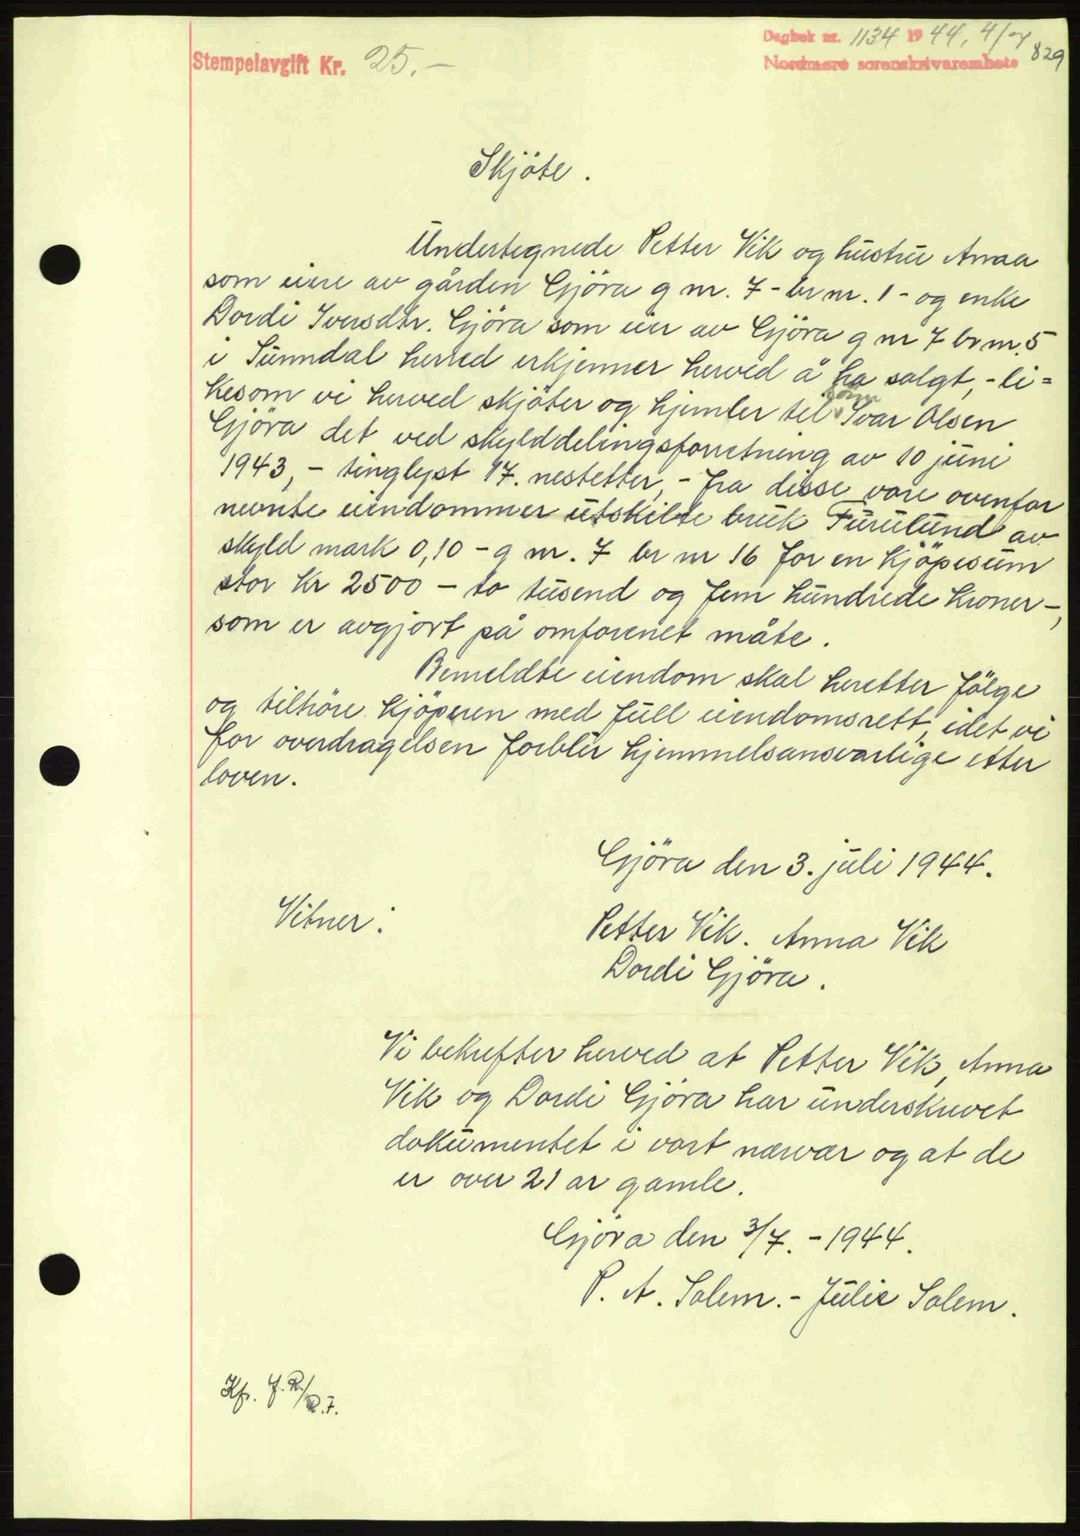 Dagbok nr. 1134 1944, 4/7
829
Stempelavgift Kr. 25.-
Nordmøre sorenskriverembete
Skjöte.
Undertegnede Petter Vik og hustru Anna
som eiere av gården Gjöra g nr. 7 - br nr. 1 - og enke
Dordi Iversdtr. Gjöra som eier av Gjöra g nr 7 br nr. 5
i Sunndal herred erkjenner herved å ha solgt, - li=
kesom vi herved skjöter og hjemler til sönn Ivar Olsen
Gjöra det ved skylddelingsforretning av 10 juni
1943, - tinglyst 17. nestetter, - fra disse vore ovenfor
nevnte eiendommer utskilte bruk Furulund av
skyld mark 0,10 - g nr. 7 br nr 16 for en kjöpesum
stor kr 2500 - to tusend og fem hundrede kroner -,
som er avgjort på omforenet måte.
Bemeldte eiendom skal heretter fölge
og tilhöre kjöperen med full eiendomsrett, idet vi
for overdragelsen forblir hjemmelsansvarlige etter
loven.
Gjöra den 3. juli 1944.
Vitner:
Petter Vik. Anna Vik
Dordi Gjöra.
Vi bekrefter herved at Petter Vik, Anna
Vik og Dordi Gjöra har underskrevet
dokumentet i vort nærvær og at de
er over 21 år gamle.
Gjöra den 3/7. - 1944.
P. A. Solem. - Julie Solem.
Kfr.
R.F.